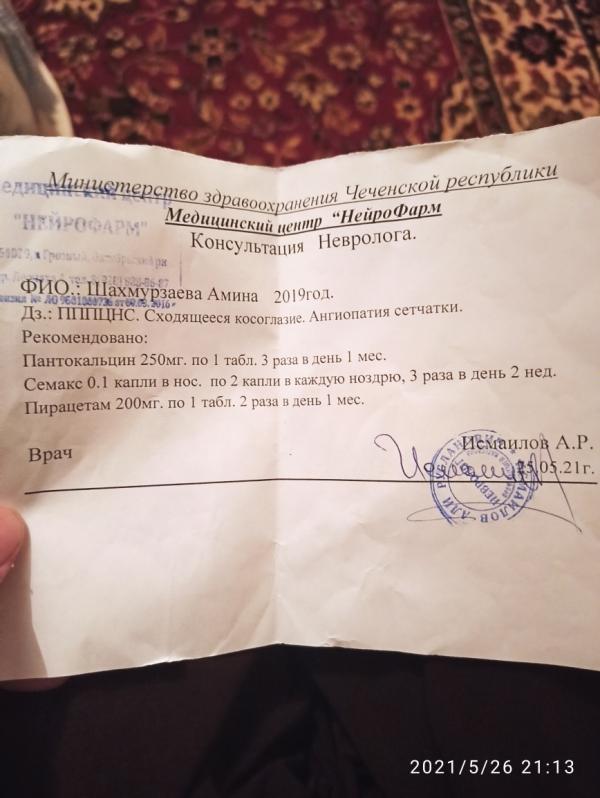 Министерство здравоохранения Чеченской республики
Медицинский центр "НейроФарм
Консультация Невролога.
едицинский центр
"НЕЙРОФАРМ"
ФИО.: Шахмурзаева Амина 2019год.
Дз.: ПППЦНС. Сходящееся косоглазие. Ангиопатия сетчатки.
Рекомендовано:
Пантокальцин 250мг. по 1 табл. 3 раза в день 1 мес.
Семакс 0.1 капли в нос. по 2 капли в каждую ноздрю, 3 раза в день 2 нед.
Пирацетам 200мг. по 1 табл. 2 раза в день 1 мес.
Врач
Исмаилов А.Р.
25.05.21г.
2021/5/26 21:13